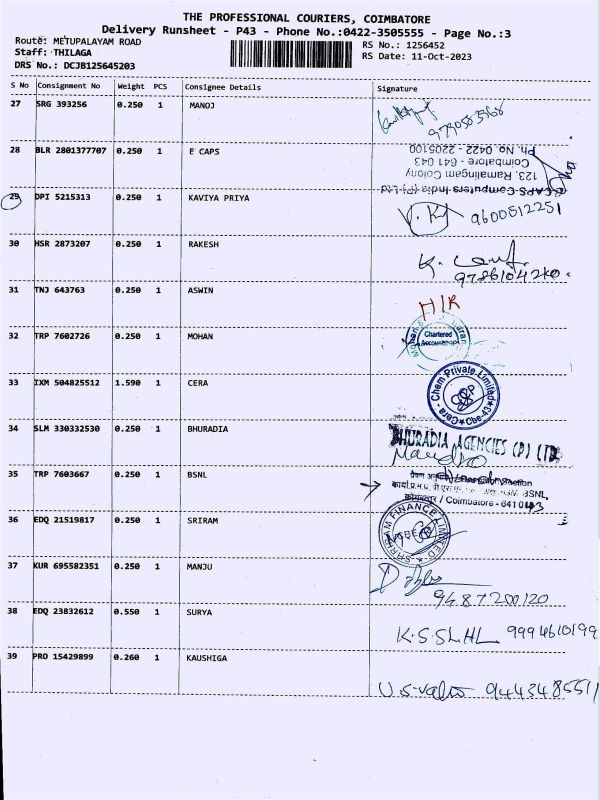 THE PROFESSIONAL COURIERS, COIMBATORE
Delivery Runsheet - P43 - Phone No.:0422-3505555 - Page No.:3
Route: METUPALAYAM ROAD
Staff: THILAGA
DRS No.: DCJB125645203
RS No.: 1256452
RS Date: 11-Oct-2023
S No Consignment No Weight PCS Consignee Details Signature
27 SRG 393256 0.250 1 MANOJ
28 BLR 2801377707 0.250 1 E CAPS
Ph. No. 0422 - 2205100
Coimbatore - 641 043
123, Ramalingam Colony
ECAPS Computers India (P) Ltd
29 DPI 5215313 0.250 1 KAVIYA PRIYA
9600512251
30 HSR 2873207 0.250 1 RAKESH
31 TNJ 643763 0.250 1 ASWIN
H/R
32 TRP 7602726 0.250 1 MOHAN
Chartered
Accountant
33 IXM 504825512 1.590 1 CERA
Cera - Chem Private Limited
Cbe-43
34 SLM 330332530 0.250 1 BHURADIA
BHURADIA AGENCIES (P) LTD
35 TRP 7603667 0.250 1 BSNL
BSNL,
कोयम्बत्तूर / Coimbatore - 641043
36 EDQ 21519817 0.250 1 SRIRAM
SHRIRAM FINANCE LIMITED
37 KUR 695582351 0.250 1 MANJU
9487200120
38 EDQ 23832612 0.550 1 SURYA
K.S.SLHL 9994610199
39 PRO 15429899 0.260 1 KAUSHIGA
9443485511